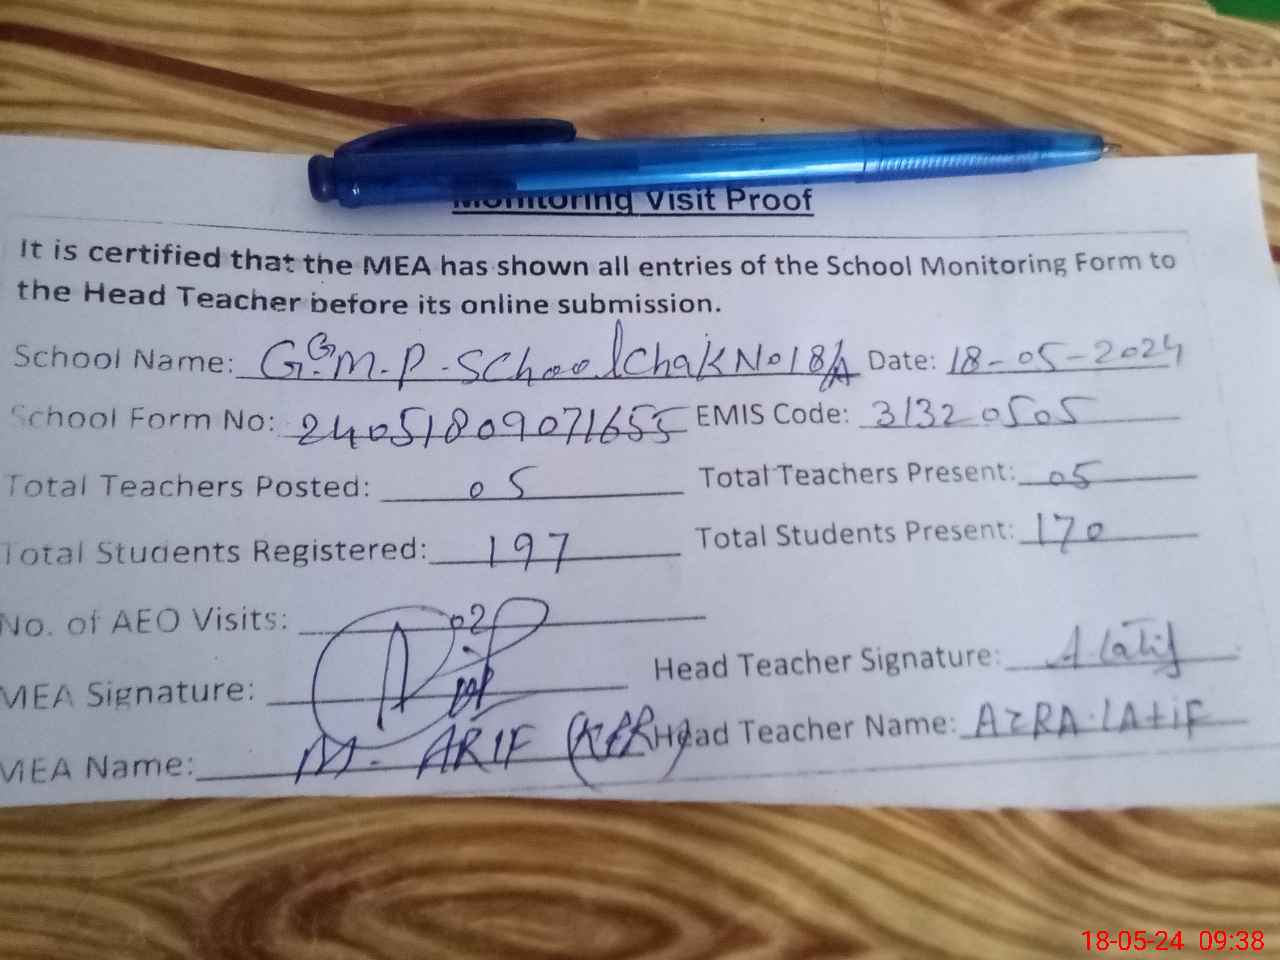 Monitoring Visit Proof
It is certified that the MEA has shown all entries of the School Monitoring Form to
the Head Teacher before its online submission.
School Name: G.G.M.P. School Chak No 18/A Date: 18-05-2024
School Form No: 24051809071655 EMIS Code: 31320505
Total Teachers Posted: 05 Total Teachers Present: 05
Total Students Registered: 197 Total Students Present: 170
No. of AEO Visits: 02
MEA Signature: Head Teacher Signature: A latif
MEA Name: M. ARIF Head Teacher Name: AZRA LAtiF
18-05-24 09:38